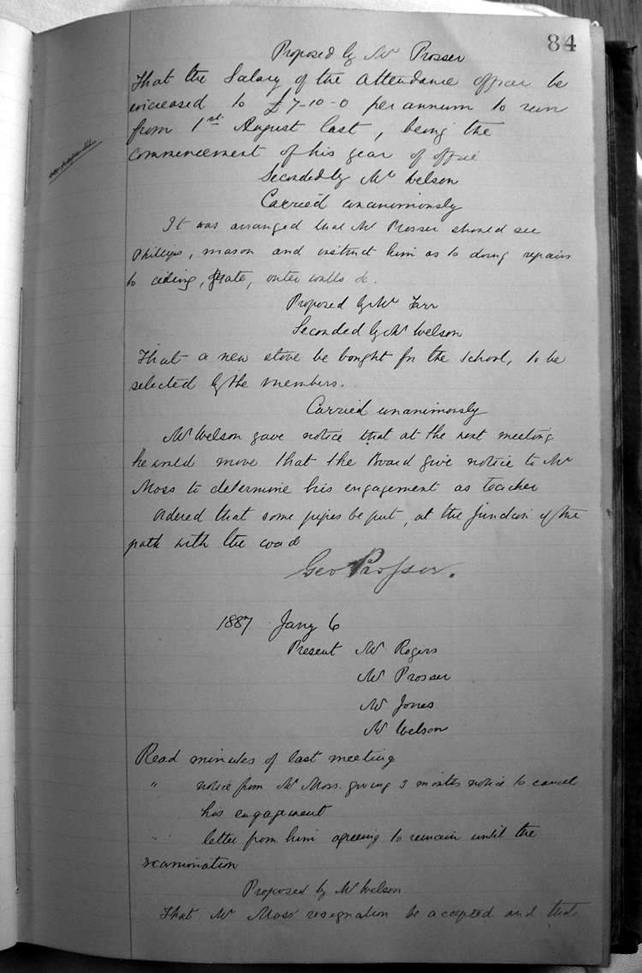 84
Proposed by Mr Prosser
That the Salary of the Attendance officer be
increased to £7-10-0 per annum to run
from 1st August last, being the
commencement of his year of office
Seconded by Mr Welson
Carried unanimously
It was arranged that Mr Prosser should see
Phillips, mason and instruct him as to doing repairs
to ceiling, grate, outer walls &c.
Proposed by Mr Farr
Seconded by Mr Welson
That a new stove be bought for the School, to be
selected by the members.
Carried unanimously
Mr Welson gave notice that at the next meeting
he would move that the Board give notice to Mr
Moss to determine his engagement as teacher
Ordered that some pipes be put, at the junction of the
path with the road
Geo Prosser.
1887 Jany 6
Present Mr Rogers
Mr Prosser
Mr Jones
Mr Welson
Read minutes of last meeting
" notice from Mr Moss giving 3 months notice to cancel
his engagement
" letter from him agreeing to remain until the
examination
Proposed by Mr Welson
That Mr Moss' resignation be accepted and that